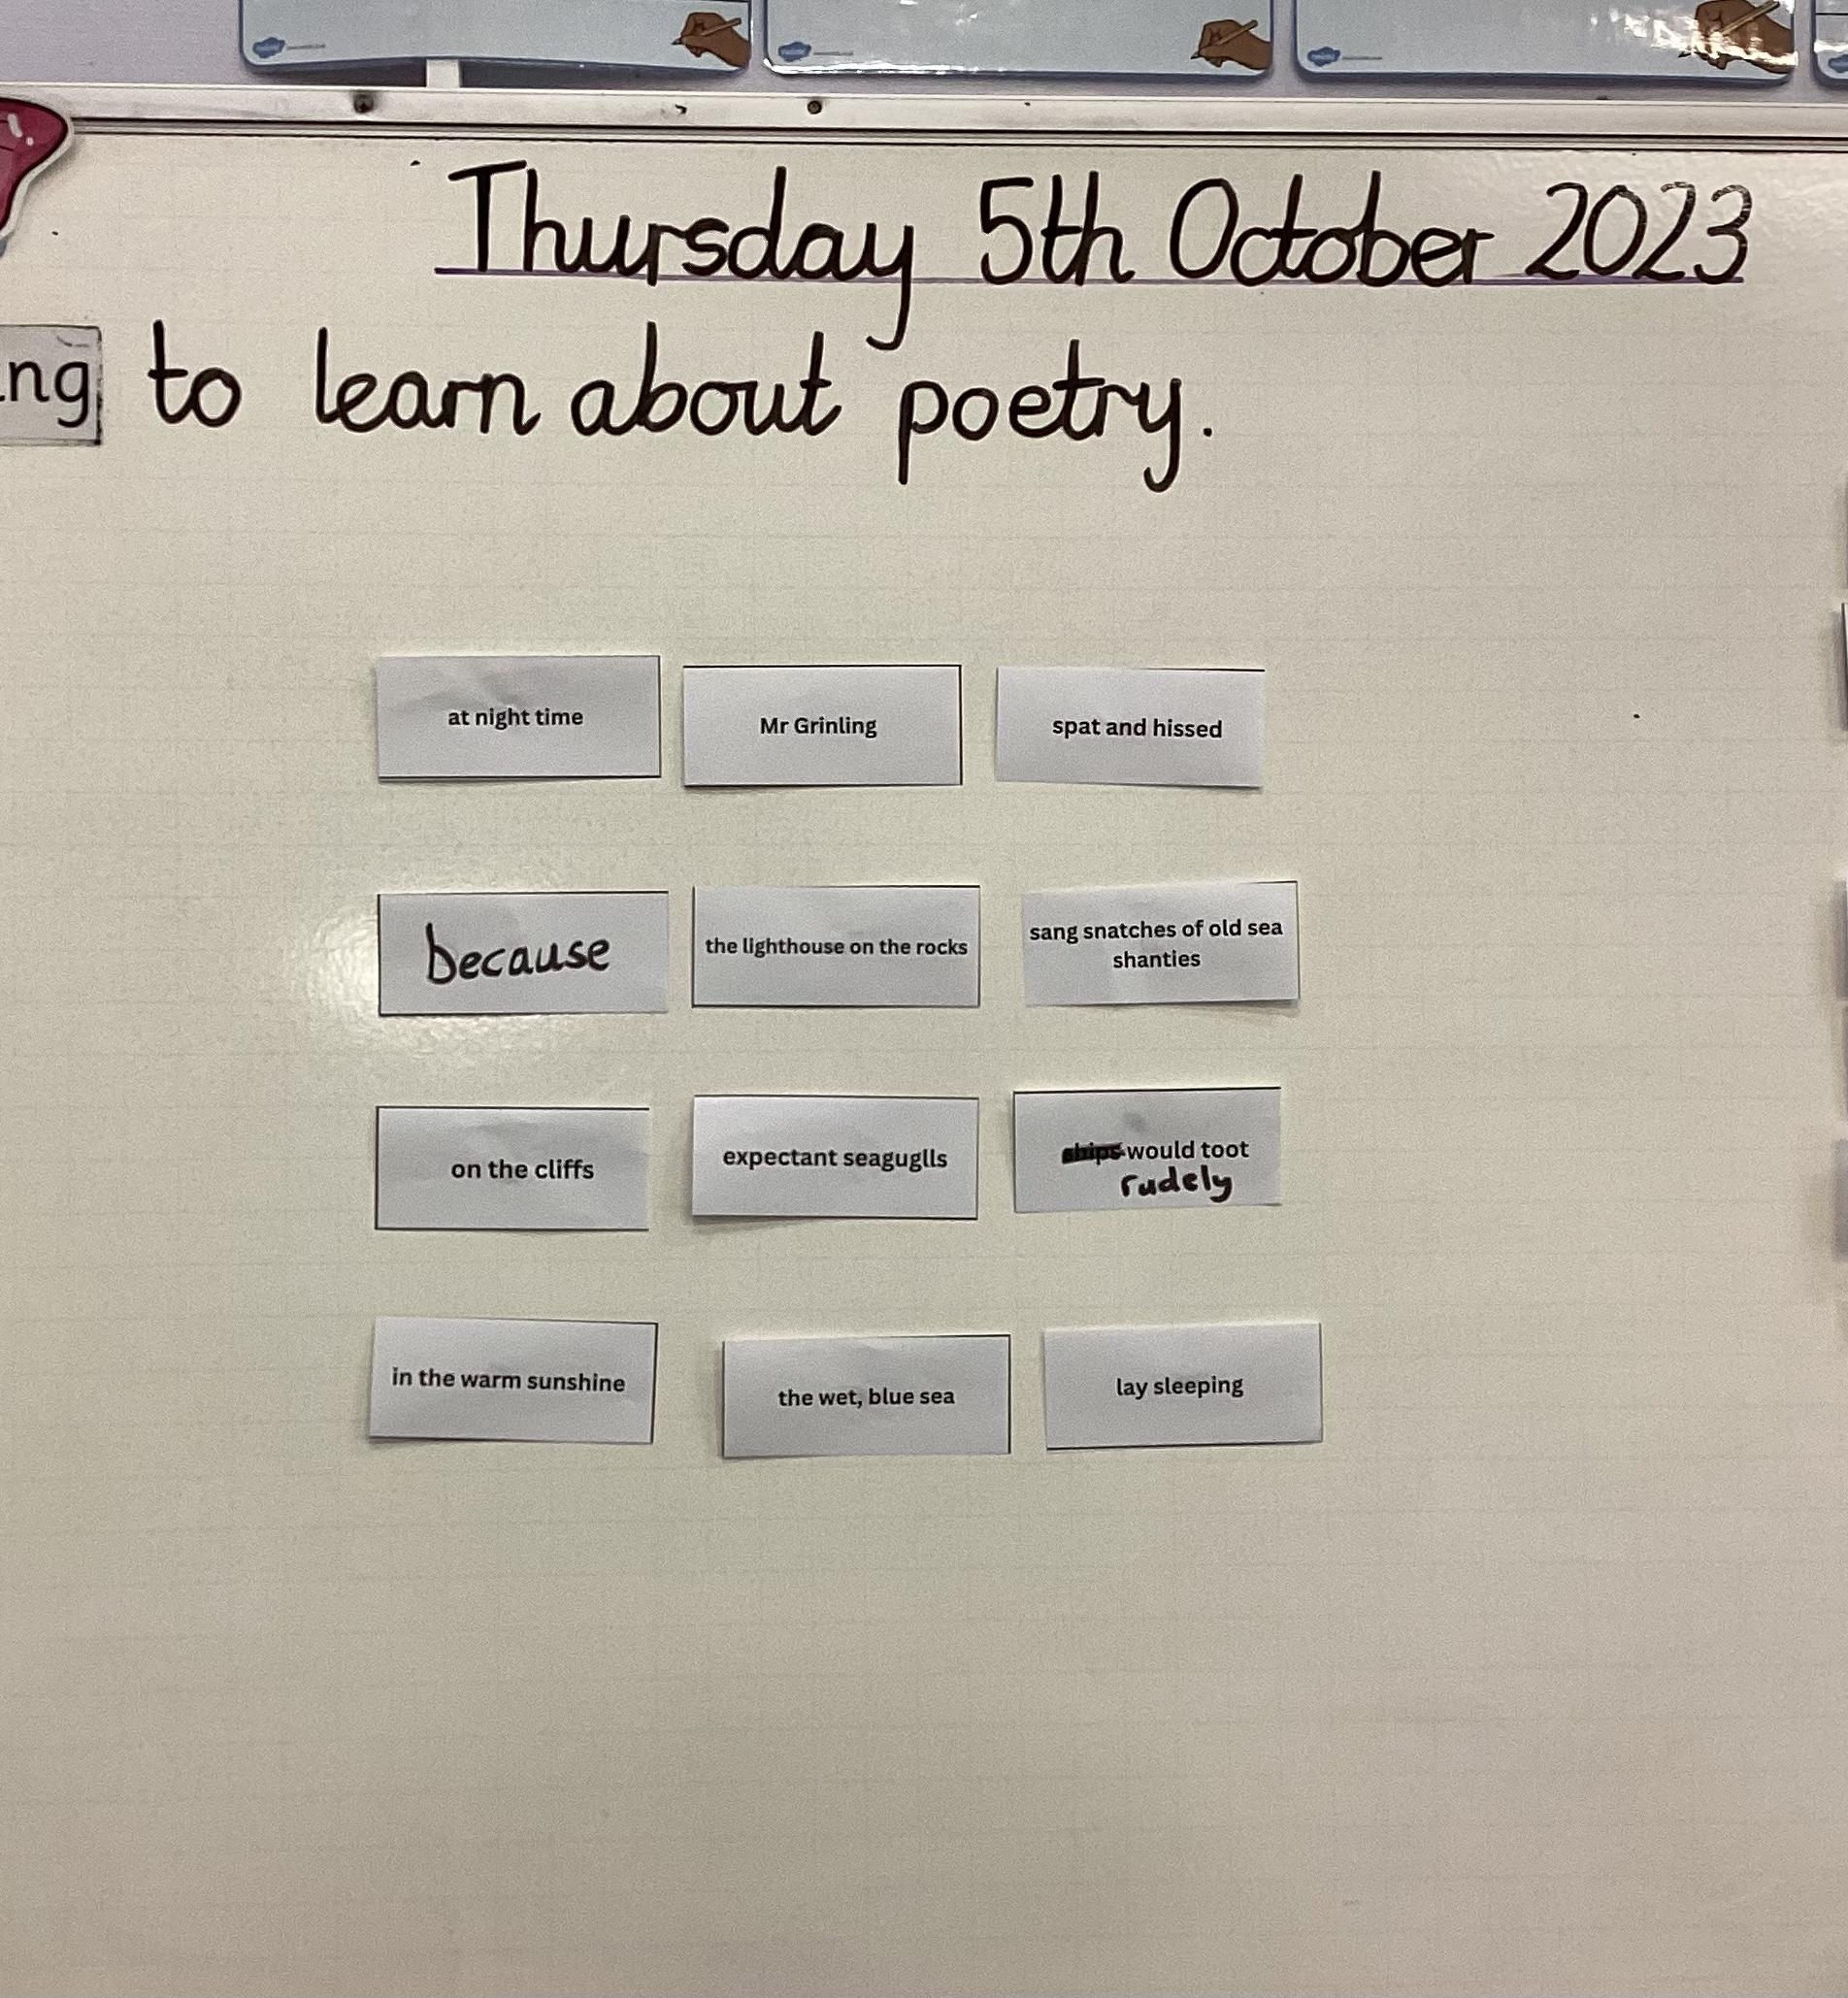 Thursday 5th October 2023
ng to learn about poetry.
at night time Mr Grinling spat and hissed
because the lighthouse on the rocks sang snatches of old sea
shanties
on the cliffs expectant seaguglls ships would toot
rudely
in the warm sunshine the wet, blue sea lay sleeping